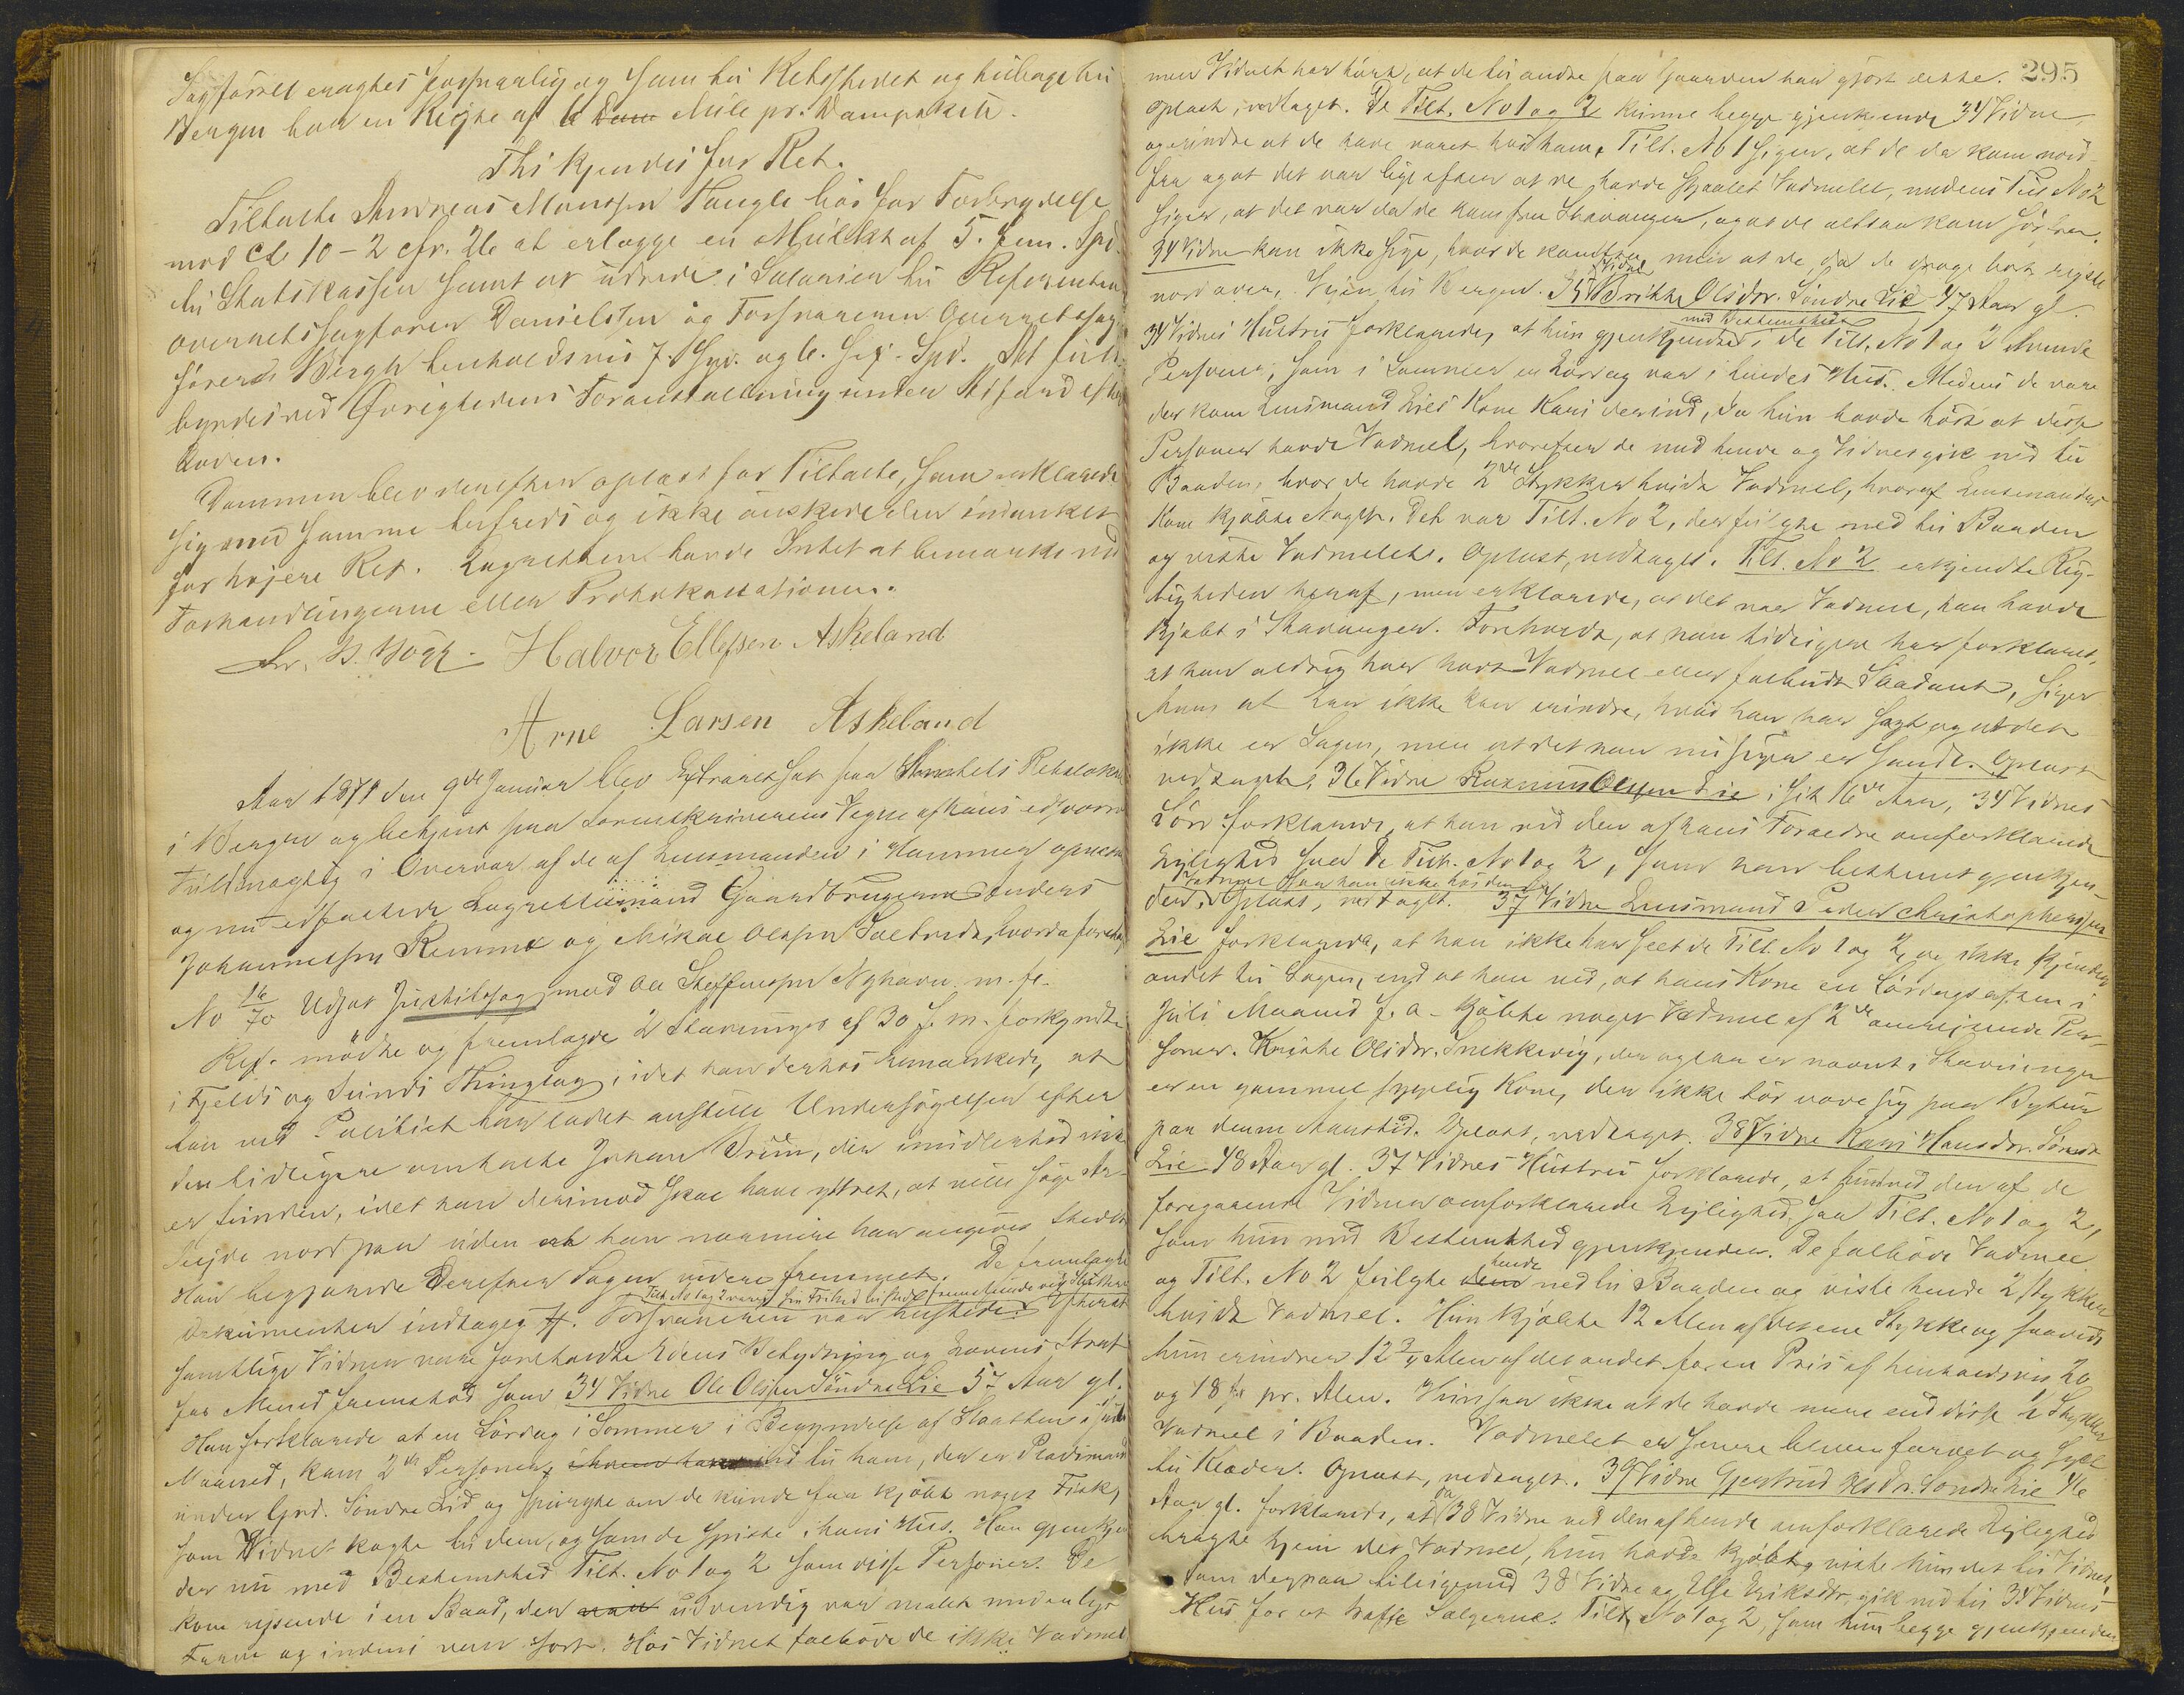 Sagförsel eragtes forsvarlig og som til Retsstedet og tilbage til
Bergen har en Rejse af 6 Dam Mile pr. Dampskib.
Thi kjendes for Ret.
Tiltalte Andreas Monssen Haugle bör for Forbrydelse
mod Cl. 10-2 cfr. 26 at erlægge en Mulkt af 5. fem. Spd.
til Statskassen samt at udrede i Salarier til Referenten
overretssagfører Danielsen og Forsvareren Overretssag-
fører Bergh henholdsvis 7. Syv. og 6. Sex. Spd. At fuld-
byrdes ved Øvrighedens Foranstaltning under Adfærd efter
Loven.
Dommen blev derefter oplæst for Tiltalte, som erklærede
sig med samme tilfreds og ikke ønskede den indanket
for højere Ret. Lagretten havde Intet at bemærke ved
Forhandlingerne eller Protokollationen.
Halvor Ellefsen Askeland
Arne Larsen Askeland
Aar 1871 den 9de Januar blev Extraret sat paa Amtets Retslokale
i Bergen og betjent paa Sorenskriverens Vegne af hans edsvorne
Fuldmægtig i Overvær af de af Lensmanden i Hammer opnævnte
og nu edfæstede Lagrettemænd Gaardbrugerne Anders
Johannessen Remme og Mikal Olsen Saltredt, hvorda foretoges
No 16/70 Udsat Justitssag mod Ole Steffensen Nyhavn m. fl.
Ref. mödte og fremlagde 2 Stævninger af 30 f. m. forkyndte
i Fjelds og Sunds Thinglag, idet han derhos bemærkede, at
han ved Politiet har ladet anstille Undersögelser efter
den tidligere omtalte Johan Bruun, der imidlertid ikke
er funden, idet han derimod skal have yttret, at ville söge Ar-
bejde nordpaa uden at han nærmere har angivet Stedet.
Han begjærede derefter Sagen videre fremmet. De fremlagte
Dokumenter indtages #. Forsvareren var tilstede. Tilt. No 1 og 2 vare i sin Frihed tilstede fremstillede ved Skranken. Efterat
samtlige Vidner vare foreholdte Edens Betydning og Lovens Straf
for Mened fremstod som 34 Vidne Ole Olsen Söndre Lie 57 Aar gl.
Han forklarede at en Lördag i Sommer i Begyndelse af Slaatten i Juli
Maaned, kom 2de Personer ind til ham, der er Pladsmand
under Grd. Söndre Lid og spurgte om de kunde faa kjöbt noget Fisk,
som Vidnet kogte til dem, og som de spiste i hans Hus. Han gjenkjen-
der nu med Bestemthed Tilt. No 1 og 2 som disse Personer. De
kom rejsende i en Baad, der var udvendig var malet med en lys
Farve og indeni var sort. Hos Vidnet falböd de ikke Vadmel
295
men Vidnet har hört, at de til andre paa Gaarden har gjort dette.
Oplæst, vedtaget. De Tilt. No 1 og 2 kunne begge gjenkjende 34 Vidne,
og erindre at de have været hos ham. Tilt. No 1 siger, at de da kom nord-
fra og at det var lige efter at de havde stjaalet Vadmelet, medens Tilt. No 2
siger, at det var da de kom fra Stavanger, og at de altsaa kom sörfra.
34 Vidne kan ikke sige, hvor de kom fra, men at de, da de drog bort rejste
nordover, Vejen til Bergen. 35 Vidne Brithe Olsdtr. Söndre Lie 47 Aar gl.
34 Vidnes Hustru forklarede, at hun gjenkjender med Bestemthed i de Tilt. No 1 og 2 de tvende
Personer, som i Sommer en Lördag var i hendes Hus. Medens de vare
der kom Lensmand Lies Kone Kari derind, da hun havde hört at disse
Personer havde Vadmel, hvorefter de med hende og Vidnet gik ned til
Baaden, hvor de havde 2de Stykker hvidt Vadmel, hvoraf Lensmandens
Kone kjöbte Noget. Det var Tilt. No 2, der fulgte ned til Baaden
og viste Vadmelet. Oplæst, vedtaget. Tilt. No 2 erkjendte Rig-
tigheden heraf, men erklærede, at det var Vadmel, han havde
kjöbt i Stavanger. Foreholdt, at han tidligere har forklaret,
at han aldrig har havt Vadmel eller falbudt Saadant, siger
han, at han ikke kan erindre, hvad han har sagt og at det
ikke er Sagen, men at det han nu siger er sandt. Oplæst
vedtaget. 36 Vidne Rasmus Olsen Lie i sit 16de Aar, 34 Vidnes
Sön forklarede, at han ved den af hans Forældre omforklarede
Lejlighed saa de Tilt. No 1 og 2, som han bestemt gjenkjen-
der. Vadmel saa han ikke hos dem. Oplæst, vedtaget. 37 Vidne Lensmand Peder Christophersen
Lie forklarede, at han ikke har seet de Tilt. No 1 og 2, og ikke kjender
andet til Sagen, end at han ved, at hans Kone en Lördagsaften i
Juli Maaned f. A. kjöbte noget Vadmel af 2de omrejsende Per-
soner. Krithe Olsdtr. Snekkevig, der ogsaa er nævnt i Stævningen
er en gammel sygelig Kone, der ikke tör vove sig paa Bytur
paa denne Aarstid. Oplæst, vedtaget. 38 Vidne Kari Hansdtr. Söndre
Lie 48 Aar gl. 37 Vidnes Hustru forklarede, at hun ved den af de
foregaaende Vidner omforklarede Lejlighed saa Tilt. No 1 og 2,
som hun med Bestemthed gjenkjender. De falböd Vadmel
og Tilt. No 2 fulgte hende ned til Baaden og viste hende 2 Stykker
hvidt Vadmel. Hun kjöbte 12 Alen af det ene Stykke og saavidt
hun erindrer 12 3/4 Alen af det andet for en Pris af henholdsvis 20
og 18 ß pr. Alen. Hun saa ikke at de havde mere end disse 2 Stykker
Vadmel i Baaden. Vadmelet er senere bleven farvet og syet
til Klæder. Oplæst, vedtaget. 39 Vidne Gjertrud Söndre Lie 46
Aar gl. forklarede, at da 38 Vidne ved den af hende omforklarede Lejlighed
bragte hjem det Vadmel, hun havde kjöbt, viste hun det til Vidnet,
som derpaa tilligemed 38 Vidne og Else Eriksdtr. gik ned til 34 Vidnes
Hus for at træffe Sælgerne. Tilt. No 1 og 2, som hun begge gjenkjender